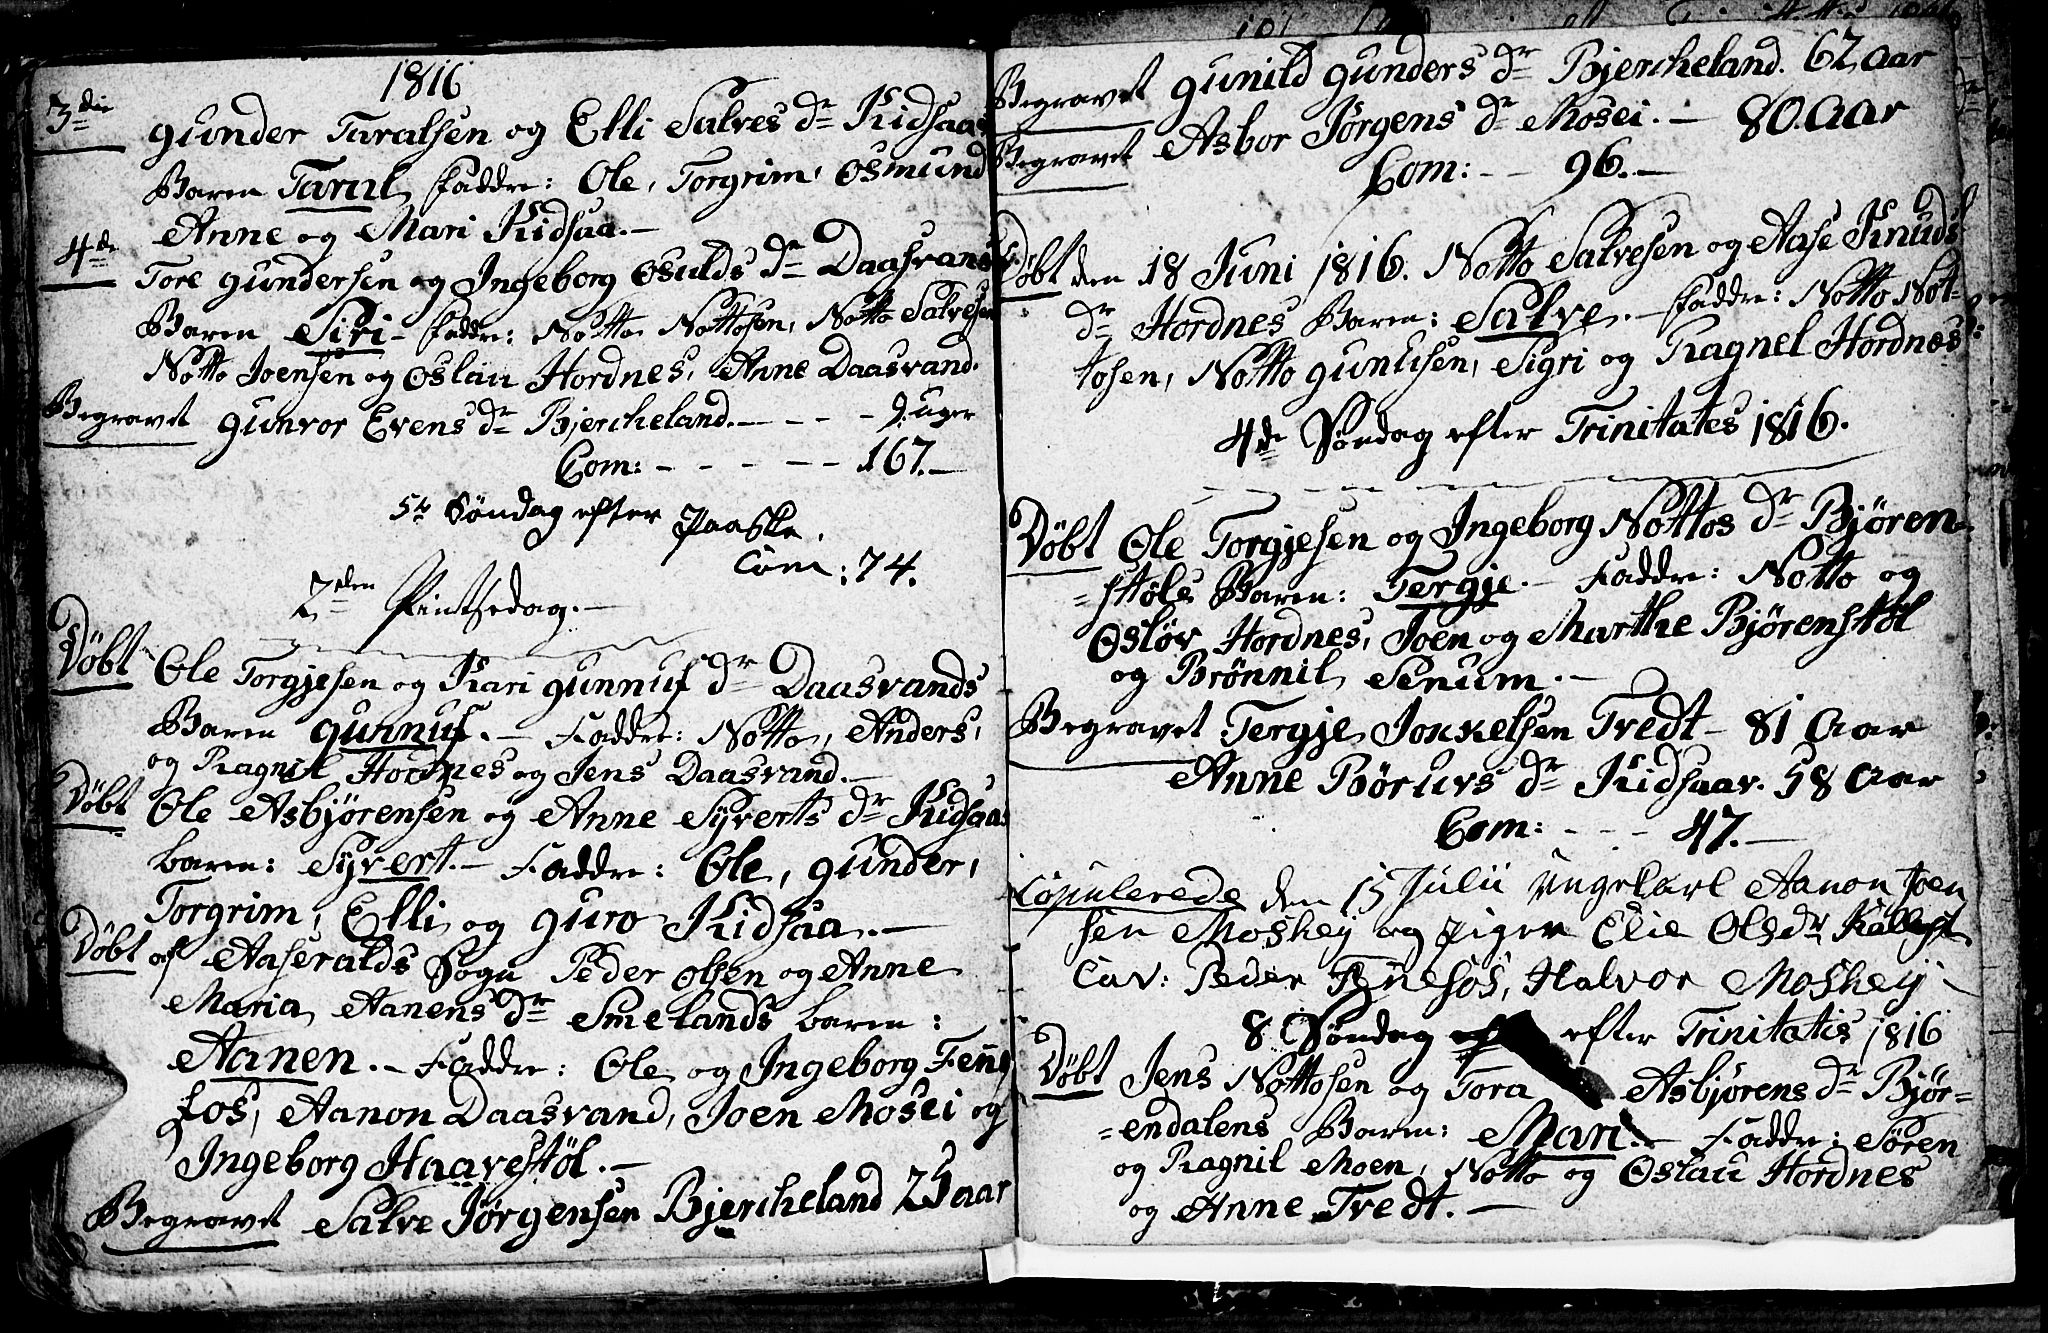 1816
3die Gunder Taralsen og Elli Salves dr Kidsaas
Baren Taral, Faddre: Ole, Torgrim, Osmund
Anne og Mari Kidsaa.–
4de Tore Gundersen og Ingeborg Osulds dr Daasvands
Baren Siri – Faddre: Notto Nottosen, Notto Salvesen
Notto Joensen og Oslau Hordnes, Anne Daasvand.
Begravet Gunvor Evens dr Bjercheland. – – – 9 uger
Com: – – – – – 167.–
5te Søndag efter Paaske.
Com: 74.
2den Pintsedag.–
Døbt Ole Torgjesen og Kari Gunnuf dr Daasvands
Baren Gunnuf. – Faddre: Notto, Anders,
og Ragnil Hordnes og Jens Daasvand.–
Døbt Ole Asbjørensen og Anne Syverts dr Kidsaas
baren: Syvert. – Faddre: Ole, Gunder,
Torgrim, Elli og Guro Kidsaa. –
Døbt af Aaseralds Sogn Peder Olsen og Anne
Maria Aanens dr Smelands baren:
Aanen. – Faddre: Ole og Ingeborg Fenne
fos, Aanon Daasvand, Joen Mosei og
Ingeborg Haavestøl. –
Begravet Salve Jørgensen Bjercheland 25 aar
Begravet Gunild Gunders dr Bjercheland. 62 aar
Begravet Asbor Jørgens dr Mosei. – 80. aar
Com: – – 96. –
Døbt den 18 Juni 1816. Notto Salvesen og Aase Knuds
dr Hordnes Baren: Salve. – Faddre: Notto Not-
tosen, Notto Gunufsen, Sigri og Ragnel Hordnes:
4de Søndag efter Trinitates 1816.
Døbt Ole Torgjesen og Ingeborg Nottos dr Bjøren-
=støls Baren: Tergje. – Faddre: Notto og
Osløv Hordnes, Joen og Marthe Bjørenstøl
og Brønnil Senum. –
Begravet Tergje Jokkelsen Tredt – 81 aar
Anne Børufs dr Kidsaav. 58 aar
Com: – – – 47. –
Copulerede den 15 Julii Ungekarl Aanon Joen
sen Moskey og Pigen Elie Olsdr
Cav: Peder Finefos, Halvor Moskey
8 Søndag efter Trinitatis 1816
Døbt Jens Nottosen og Tora Asbjørens dr Bjør-
=endalens Baren: Mari. – Faddre: Søren
og Ragnil Moen, Notto og Oslau Hordnes
og Anne Tredt. –